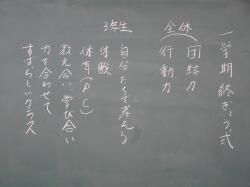 一学期 終ぎょう式
全体
団結力
行動力
3年生
自分たちで考える
体験
体育(P.C)
教え合い 学び合い
力を合わせて
すばらしいクラス